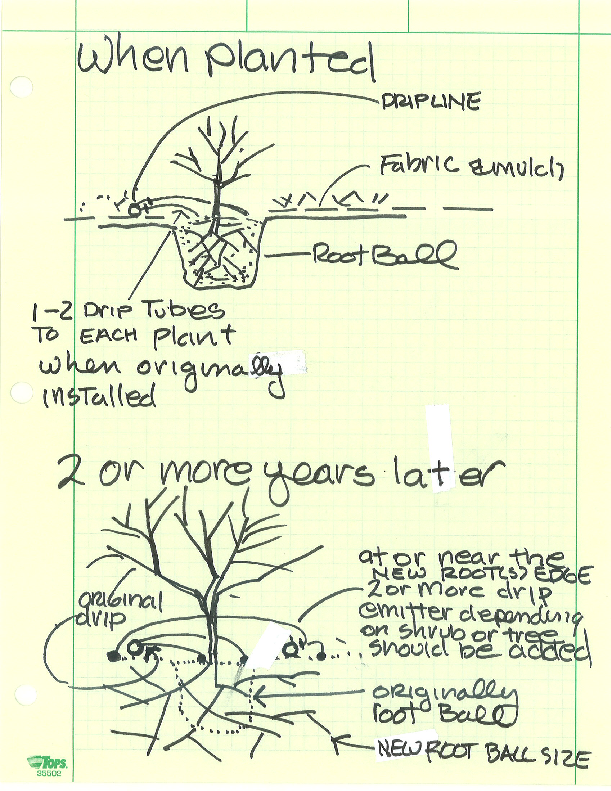 When planted
DRIPLINE
Fabric & mulch
Root Ball
1-2 Drip Tubes
To EACH plant
when originally
installed
2 or more years later
original
drip
at or near the
NEW ROOT(S) EDGE
2 or more drip
emitter depending
on shrub or tree
should be added
originally
root Ball
NEW ROOT BALL SIZE
TOPS
35502